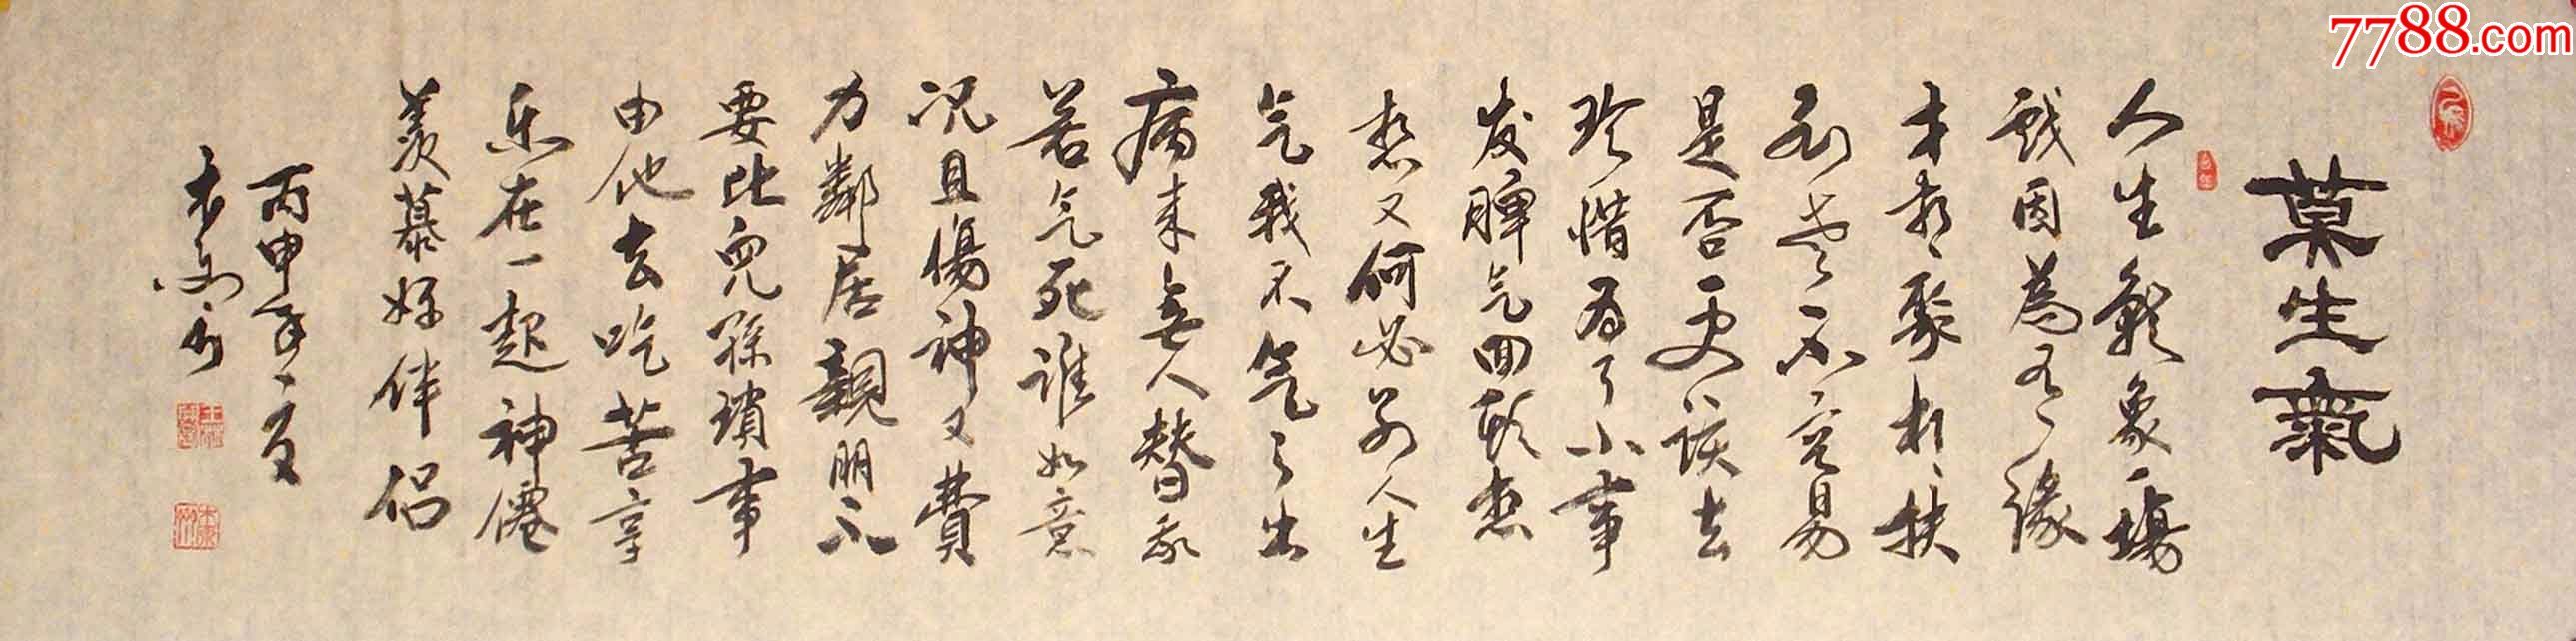 7788.com
莫生氣
人生就象一場
戲因為有緣
才相聚相扶
到老不容易
是否更該去
珍惜为了小事
发脾气回頭想
想又何必别人生
气我不气气出
病来無人替我
若气死谁如意
况且傷神又費
力鄰居親朋不
要比兒孫瑣事
由他去吃苦享
乐在一起神僊
羡慕好伴侣
丙申年之夏